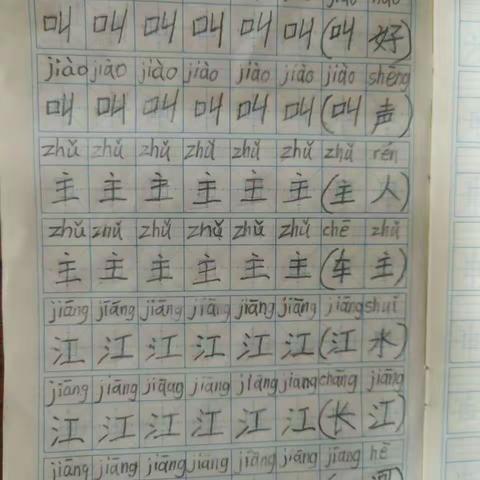 叫 叫 叫 叫 叫 叫 (叫 好)
jiào jiào jiào jiào jiào jiào jiào shēng
叫 叫 叫 叫 叫 叫 (叫 声)
zhǔ zhǔ zhǔ zhǔ zhǔ zhǔ zhǔ rén
主 主 主 主 主 主 (主 人)
zhǔ zhǔ zhǔ zhǔ zhǔ zhǔ chē zhǔ
主 主 主 主 主 主 (车 主)
jiāng jiāng jiāng jiāng jiāng jiāng jiāng shuǐ
江 江 江 江 江 江 (江 水)
jiāng jiāng jiāng jiāng jiāng jiang cháng jiāng
江 江 江 江 江 江 (长 江)
jiāng jiāng jiāng jiāng jiāng jiāng jiāng hé